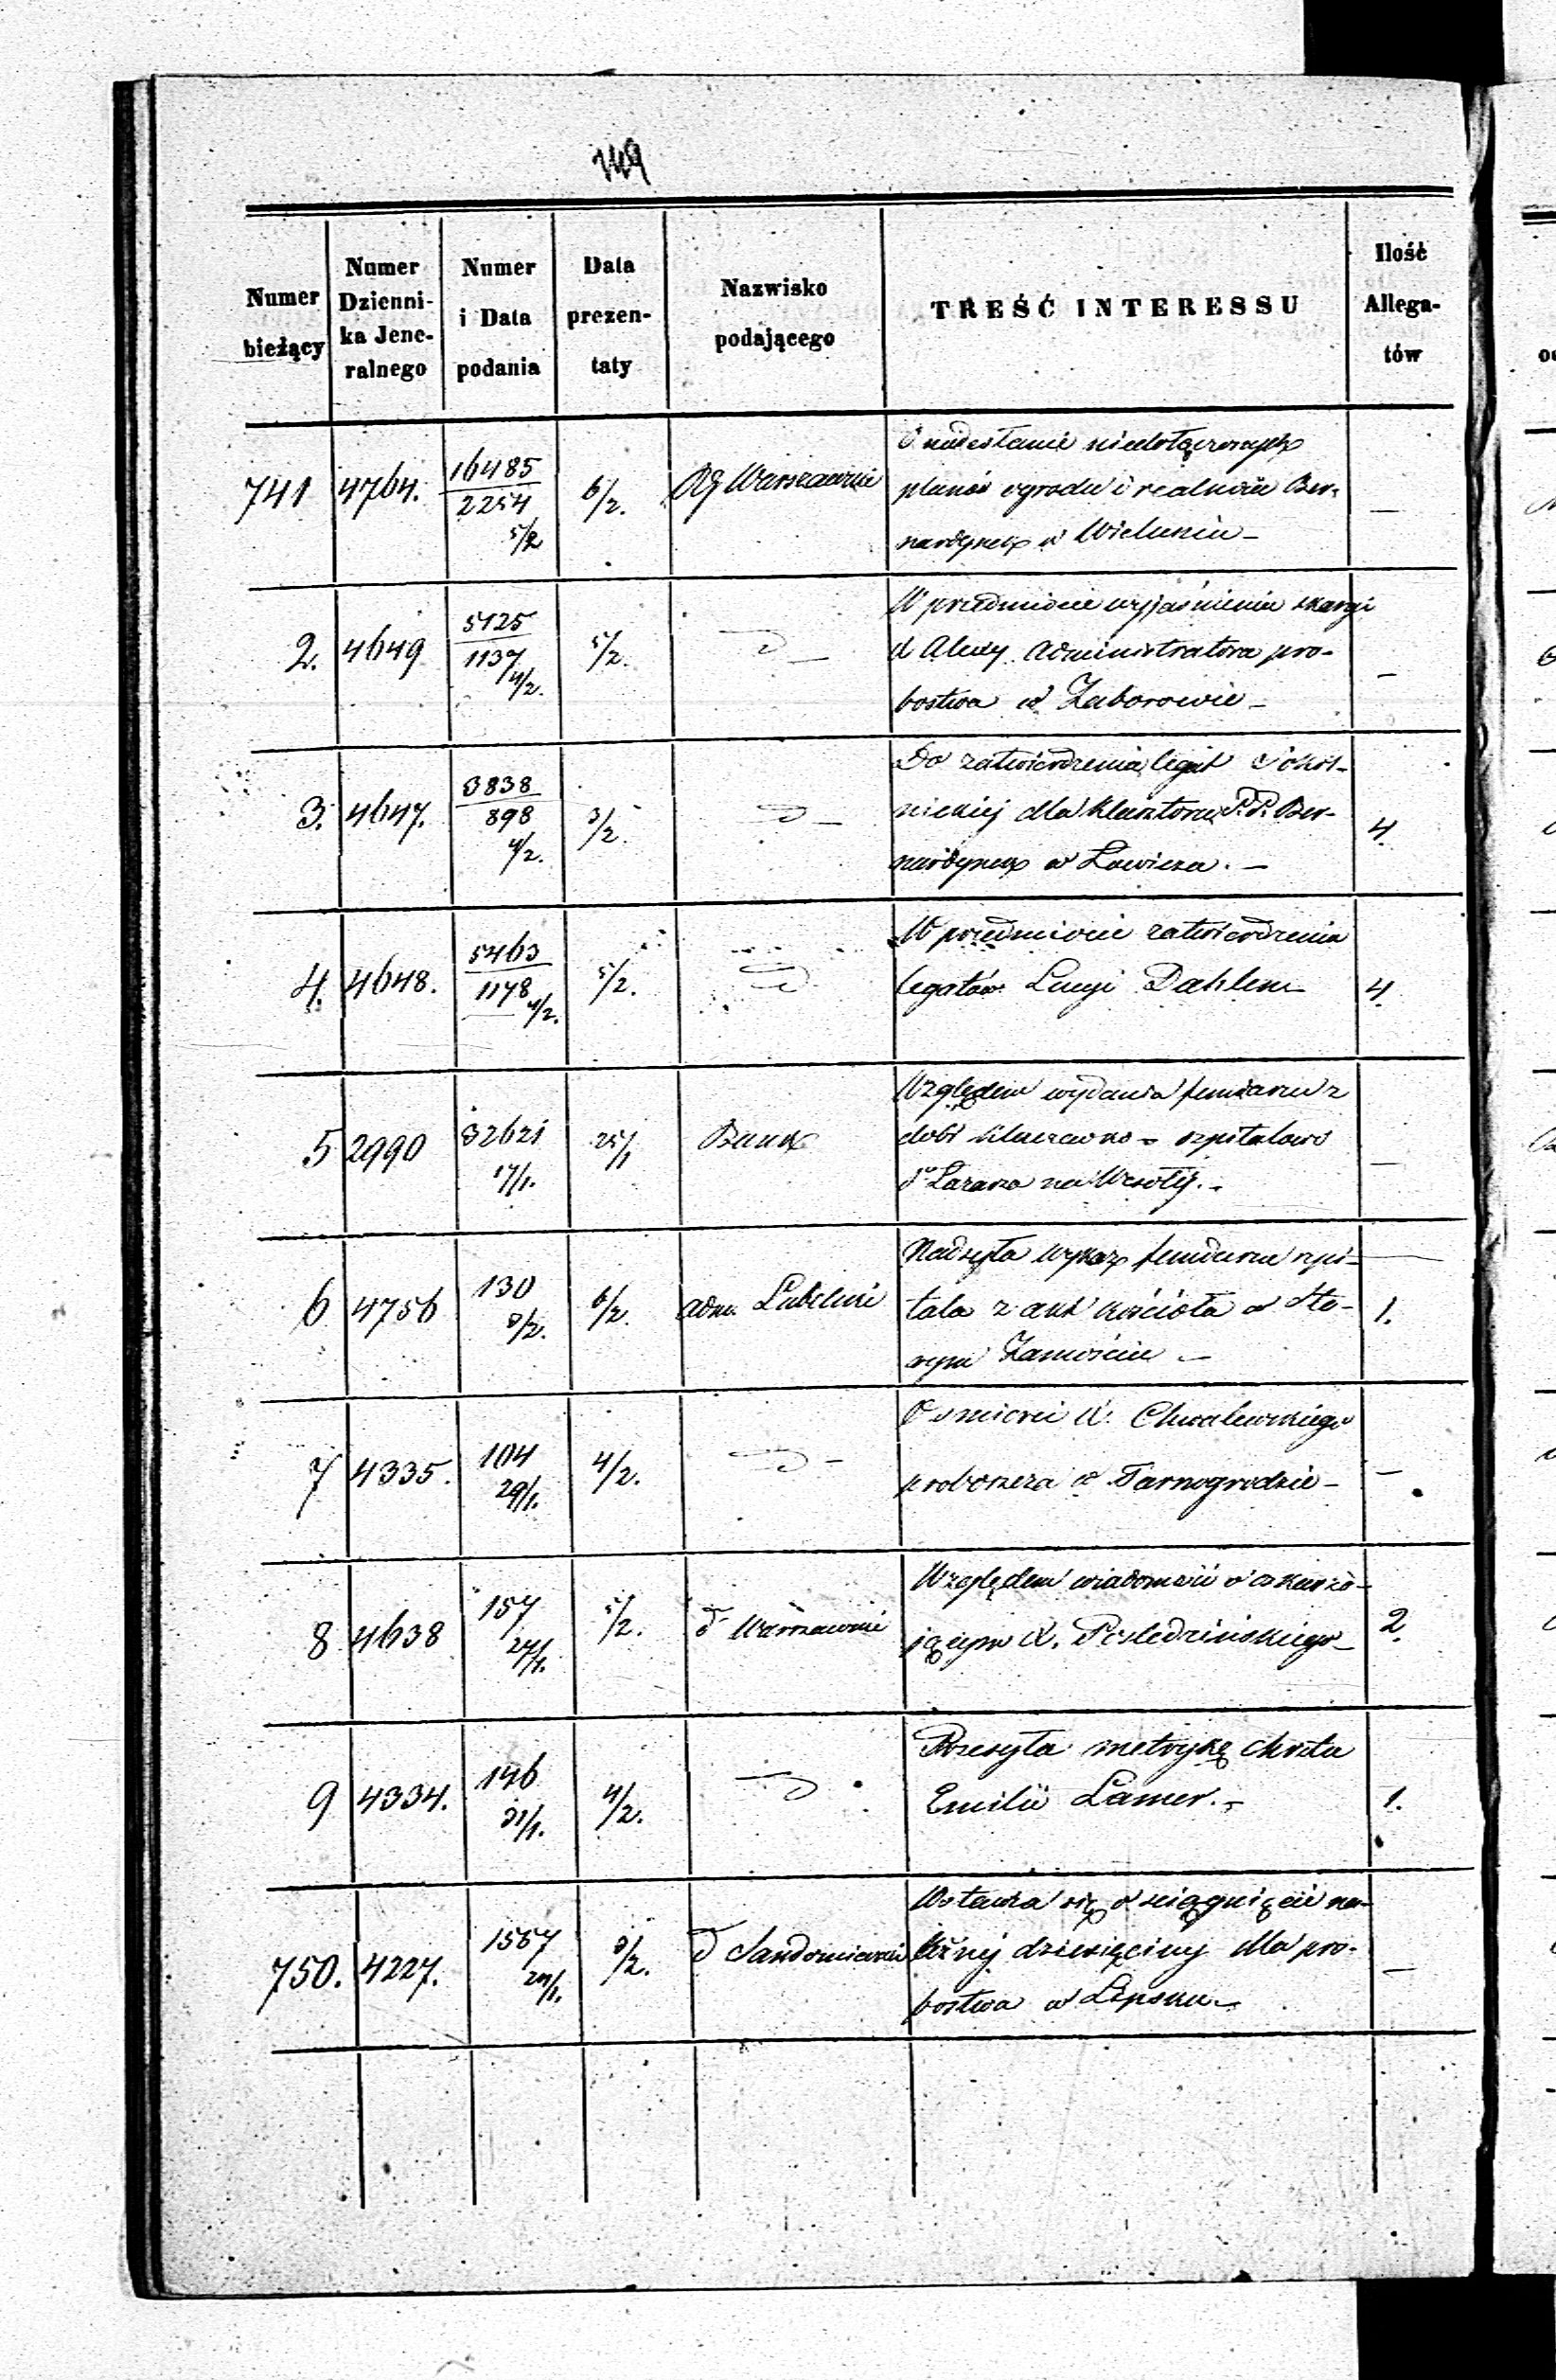 149
Numer bieżący | Numer Dzienni- ka Jene- ralnego | Numer i Data podania | Data prezen- taty | Nazwisko podającego | TREŚĆ INTERESSU | Ilość Allega- tów
741 | 4764. | 16485 / 2254 5/2 | 6/2. | RG Warszawski | O nadesłanie niedołączonych
planów ogrodu i realności Ber-
nardynek w Wieluniu — | —
2. | 4649 | 5125 / 1137 4/2. | 5/2. | d — | W przedmiocie wyjaśnienia skargi
Administratora pro-
bostwa w Zaborowie — | —
3. | 4647. | 3838 / 898 4/2. | 3/2. | d — | Do zatwierdzenia legat Sokol-
nickiej dla klasztoru P.P. Ber-
nardynek w Łowiczu. — | 4.
4. | 4648. | 5463 / 1178 4/2. | 5/2. | d | W przedmiocie zatwierdzenia
legatów Lucyi Dahlen | 4.
5 | 2990 | 32621 17/1. | 25/1 | Bank | Względem wydania funduszu z
dóbr szpitalowi
Sgo Łazarza na Wesołej. — | —
6 | 4756 | 130 3/2. | 6/2. | adm. Lubelski | Nadsyła wykaz funduszu szpi-
tala z akt kościoła w Sta-
rym Zamościu — | 1.
7 | 4335. | 104 29/1. | 4/2. | d — | O śmierci X. Chwalewskiego
proboszcza w Tarnogrodzie — | —
8 | 4638 | 157 27/1. | 5/2. | d Warszawski | Względem wiadomości o oskarża-
jącym X. — | 2.
9 | 4334. | 146 31/1. | 4/2. | d | Przesyła metrykę chrztu
Emilii Lamer. — | 1.
750. | 4227. | 1567 24/1. | 3/2. | d Sandomierski | Wstawia się o ściągnięcie na-
leżnej dziesięciny dla pro-
bostwa w Lipsku — | —